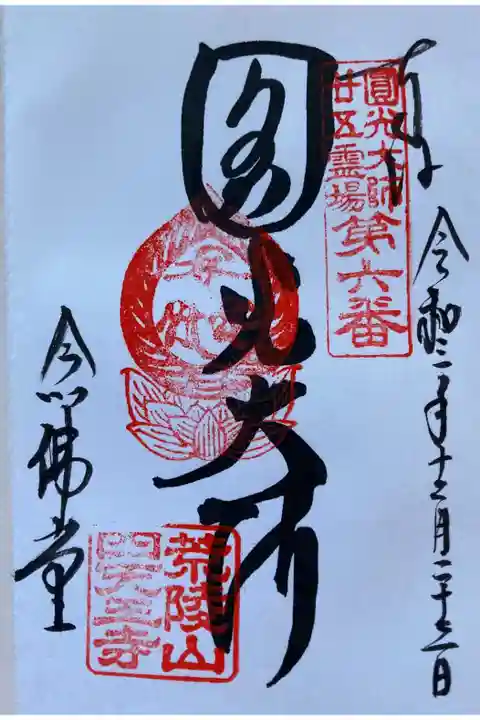 奉拝
令和二年十二月二十二日
圓光大師
廿五霊場
第六番
圓光大師
荒陵山
四天王寺
念佛堂